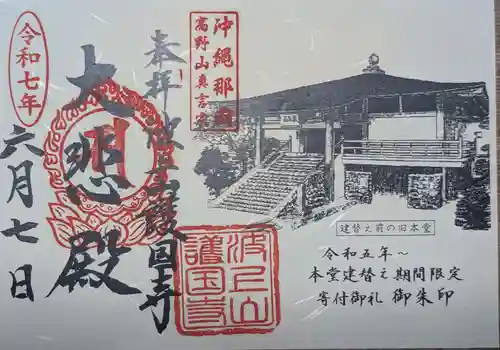 沖縄那覇
高野山真言宗
奉拝 波上山護国寺
大悲殿
令和七年
六月七日
波上山
護国寺
建替え前の旧本堂
令和五年～
本堂建替え期間限定
寄付御礼 御朱印